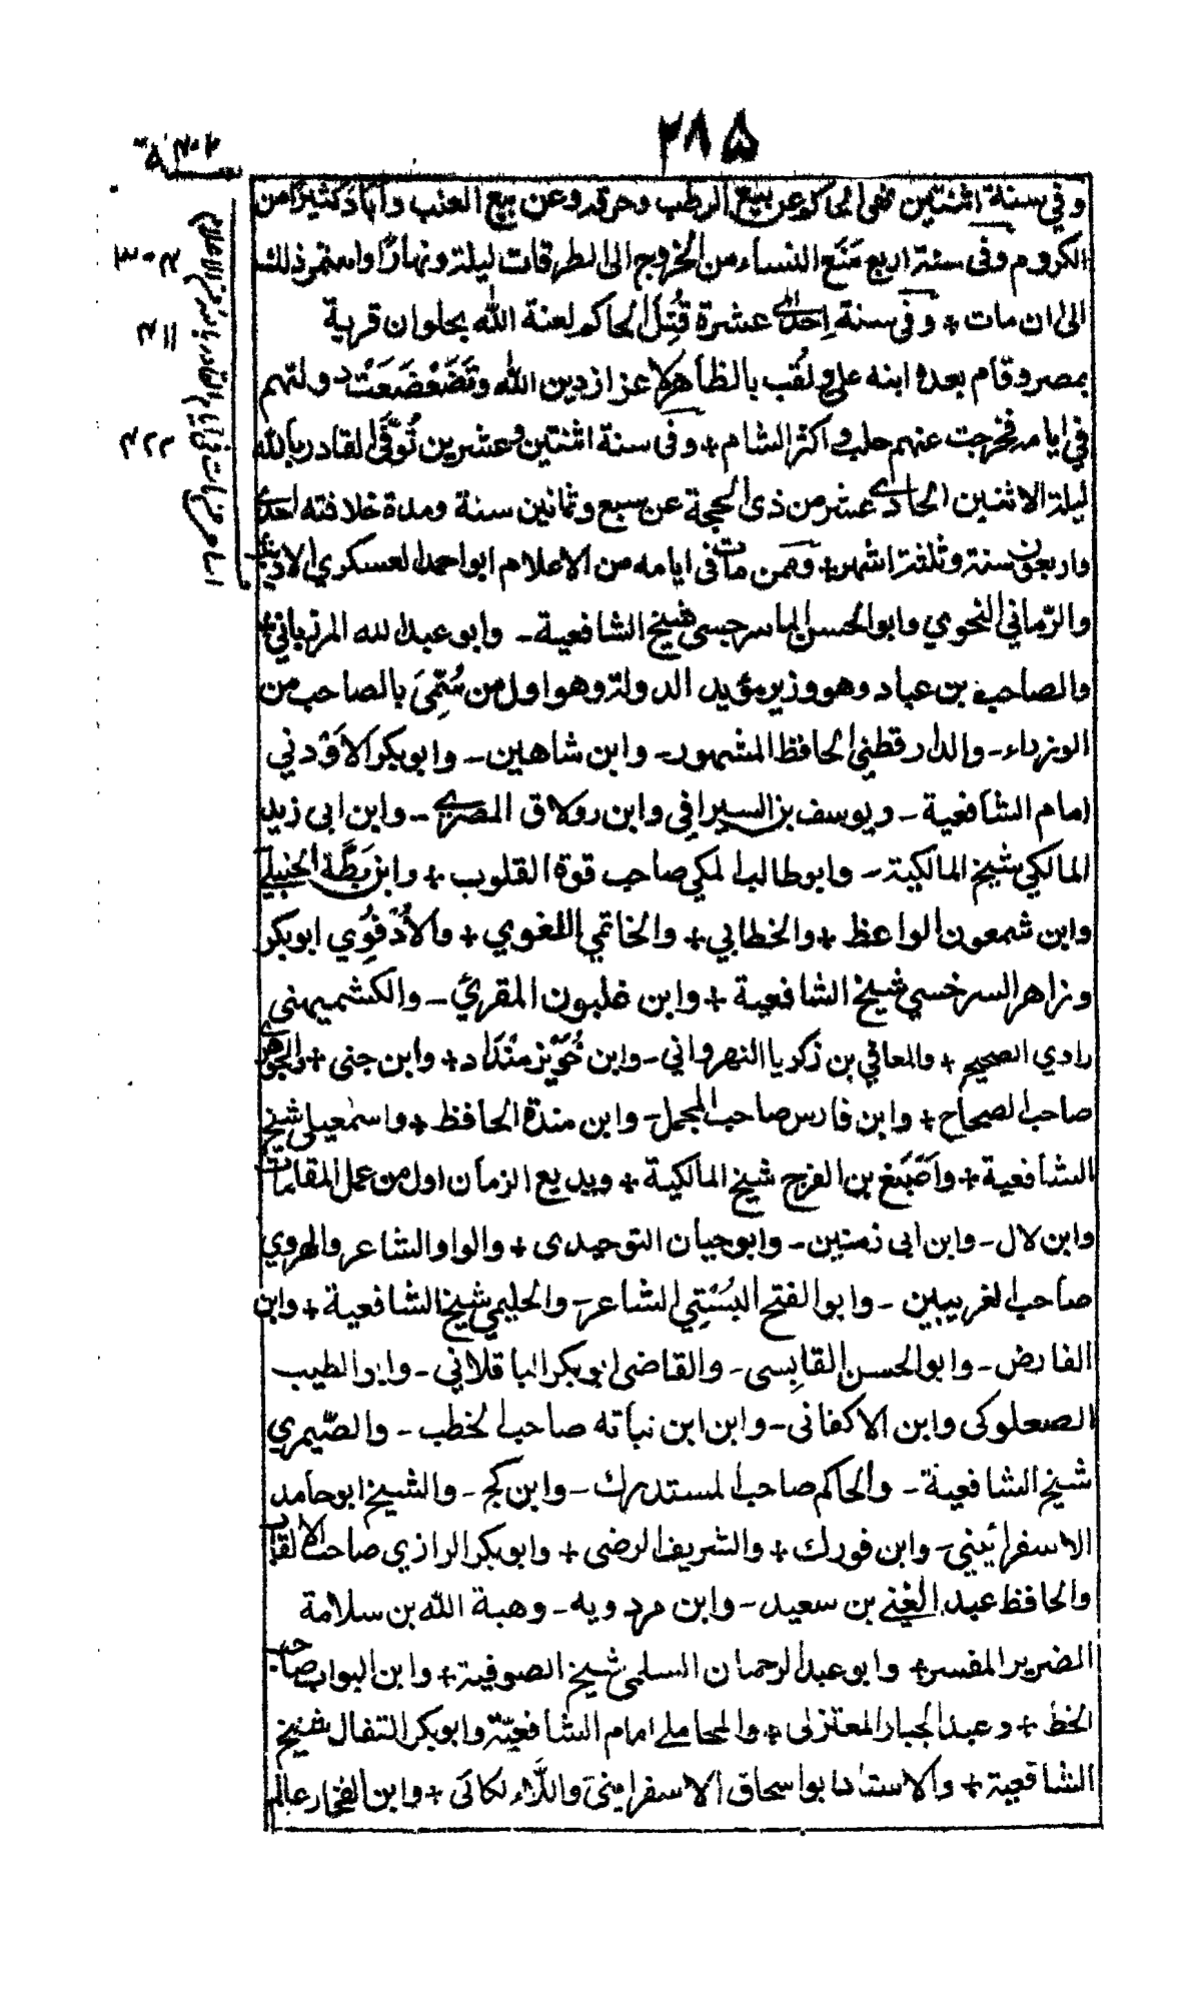 ۲۸۵
سنة ۴۰۲ھ
وفي سنة اثنتين نهى الحاكم عن بيع الرطب وحرقه وعن بيع العنب وأباد كثيرًا من
۴۰۴
الكروم وفى سنة اربع مَنَع النساء من الخروج الى الطرقات ليلة ونهارًا واستمر ذلك
۴۱۱
الى ان مات + وفى سنة إحدى عشرة قُتِلَ الحاكم لعنة الله بحلوان قرية
بمصر وقام بعده ابنه على ولُقب بالظاهر لاعزاز دين الله وتَضَعْضَعَتْ دولتهم
۴۲۲
في ايامه فخرجت عنهم حلب واكثر الشام + وفى سنة اثنتين وعشرين تُوُفّى القادر بالله
ليلة الاثنين الحادى عشر من ذى الحجة عن سبع وثمانين سنة ومدة خلافته احدى
واربعون سنة وثلثة اشهر + وممن مات فى ايامه من الاعلام ابو احمد العسكري الاديب
والرّماني النحوي وابو الحسن الماسرجسى شيخ الشافعية - وابو عبد الله المرزبانى +
والصاحب بن عباد وهو وزير مؤيد الدولة وهو اول من سُمِّىَ بالصاحب من
الوزراء - والدارقطنى الحافظ المشهور - وابن شاهين - وابو بكر الاَوْدني
امام الشافعية - ويوسف بن السيرافي وابن رولاق المصرى - وابن ابى زيد
المالكي شيخ المالكية - وابو طالب المكي صاحب قوة القلوب + وابن بَطَّة الحنبلى
وابن شمعون الواعظ + والخطابي + والخاتمي اللغوي + والاُدْفُوِي ابو بكر
وزاهر السرخسي شيخ الشافعية + وابن غلبون المقرئ - والكشميهنى
رادي الصحيح + والمعافي بن زكريا النهرواني - وابن خُوَيْز مَنْدَاد + وابن جنى + والجوهرى
صاحب الصحاح + وابن فارس صاحب المجمل - وابن مندة الحافظ + واسمٰعيلى شيخ
الشافعية + واَصْبَغ بن الفرج شيخ المالكية + وبديع الزمان اول من عمل المقامات
وابن لال - وابن ابى زمنين - وابو حيان التوحيدى + والواو الشاعر والهروي
صاحب الغريبين - وابو الفتح البُسْتِي الشاعر - والحليمي شيخ الشافعية + وابن
الفارض - وابو الحسن القابِسى - والقاضى ابو بكر الباقلاني - وابو الطيب
الصعلوكى وابن الاكفانى - وابن ابن نباته صاحب الخطب - والصَّيمري
شيخ الشافعية - والحاكم صاحب المستدرك - وابن كج - والشيخ ابو حامد
الاسفرائيني - وابن فورك + والشريف الرضى + وابو بكر الرازي صاحب الالقاب
والحافظ عبد الغنى بن سعيد - وابن مردويه - وهبة الله بن سلامة
الضرير المفسر + وابو عبد الرحمان السلمى شيخ الصوفية + وابن البواب صاحب
الخط + وعبد الجبار المعتزلى + والمحاملى امام الشافعيّة وابو بكر القفال شيخ
الشافعية + والاستاذ ابو اسحاق الاسفراينى واللّاء لكائى + وابن الفخار عالم
اسامى من مات فى ايام القادر بالله من الاعلام